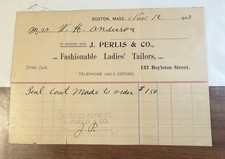 BOSTON, MASS. Nov 12 1903
Mrs. N. H. Anderson
IN ACCOUNT WITH J. PERLIS & CO.,
... Fashionable Ladies' Tailors, ...
Dress Cutl. 132 Boylston Street.
TELEPHONE OXFORD.
Seal Coat Made to order $150
RECEIVED PAYMENT
J.P.